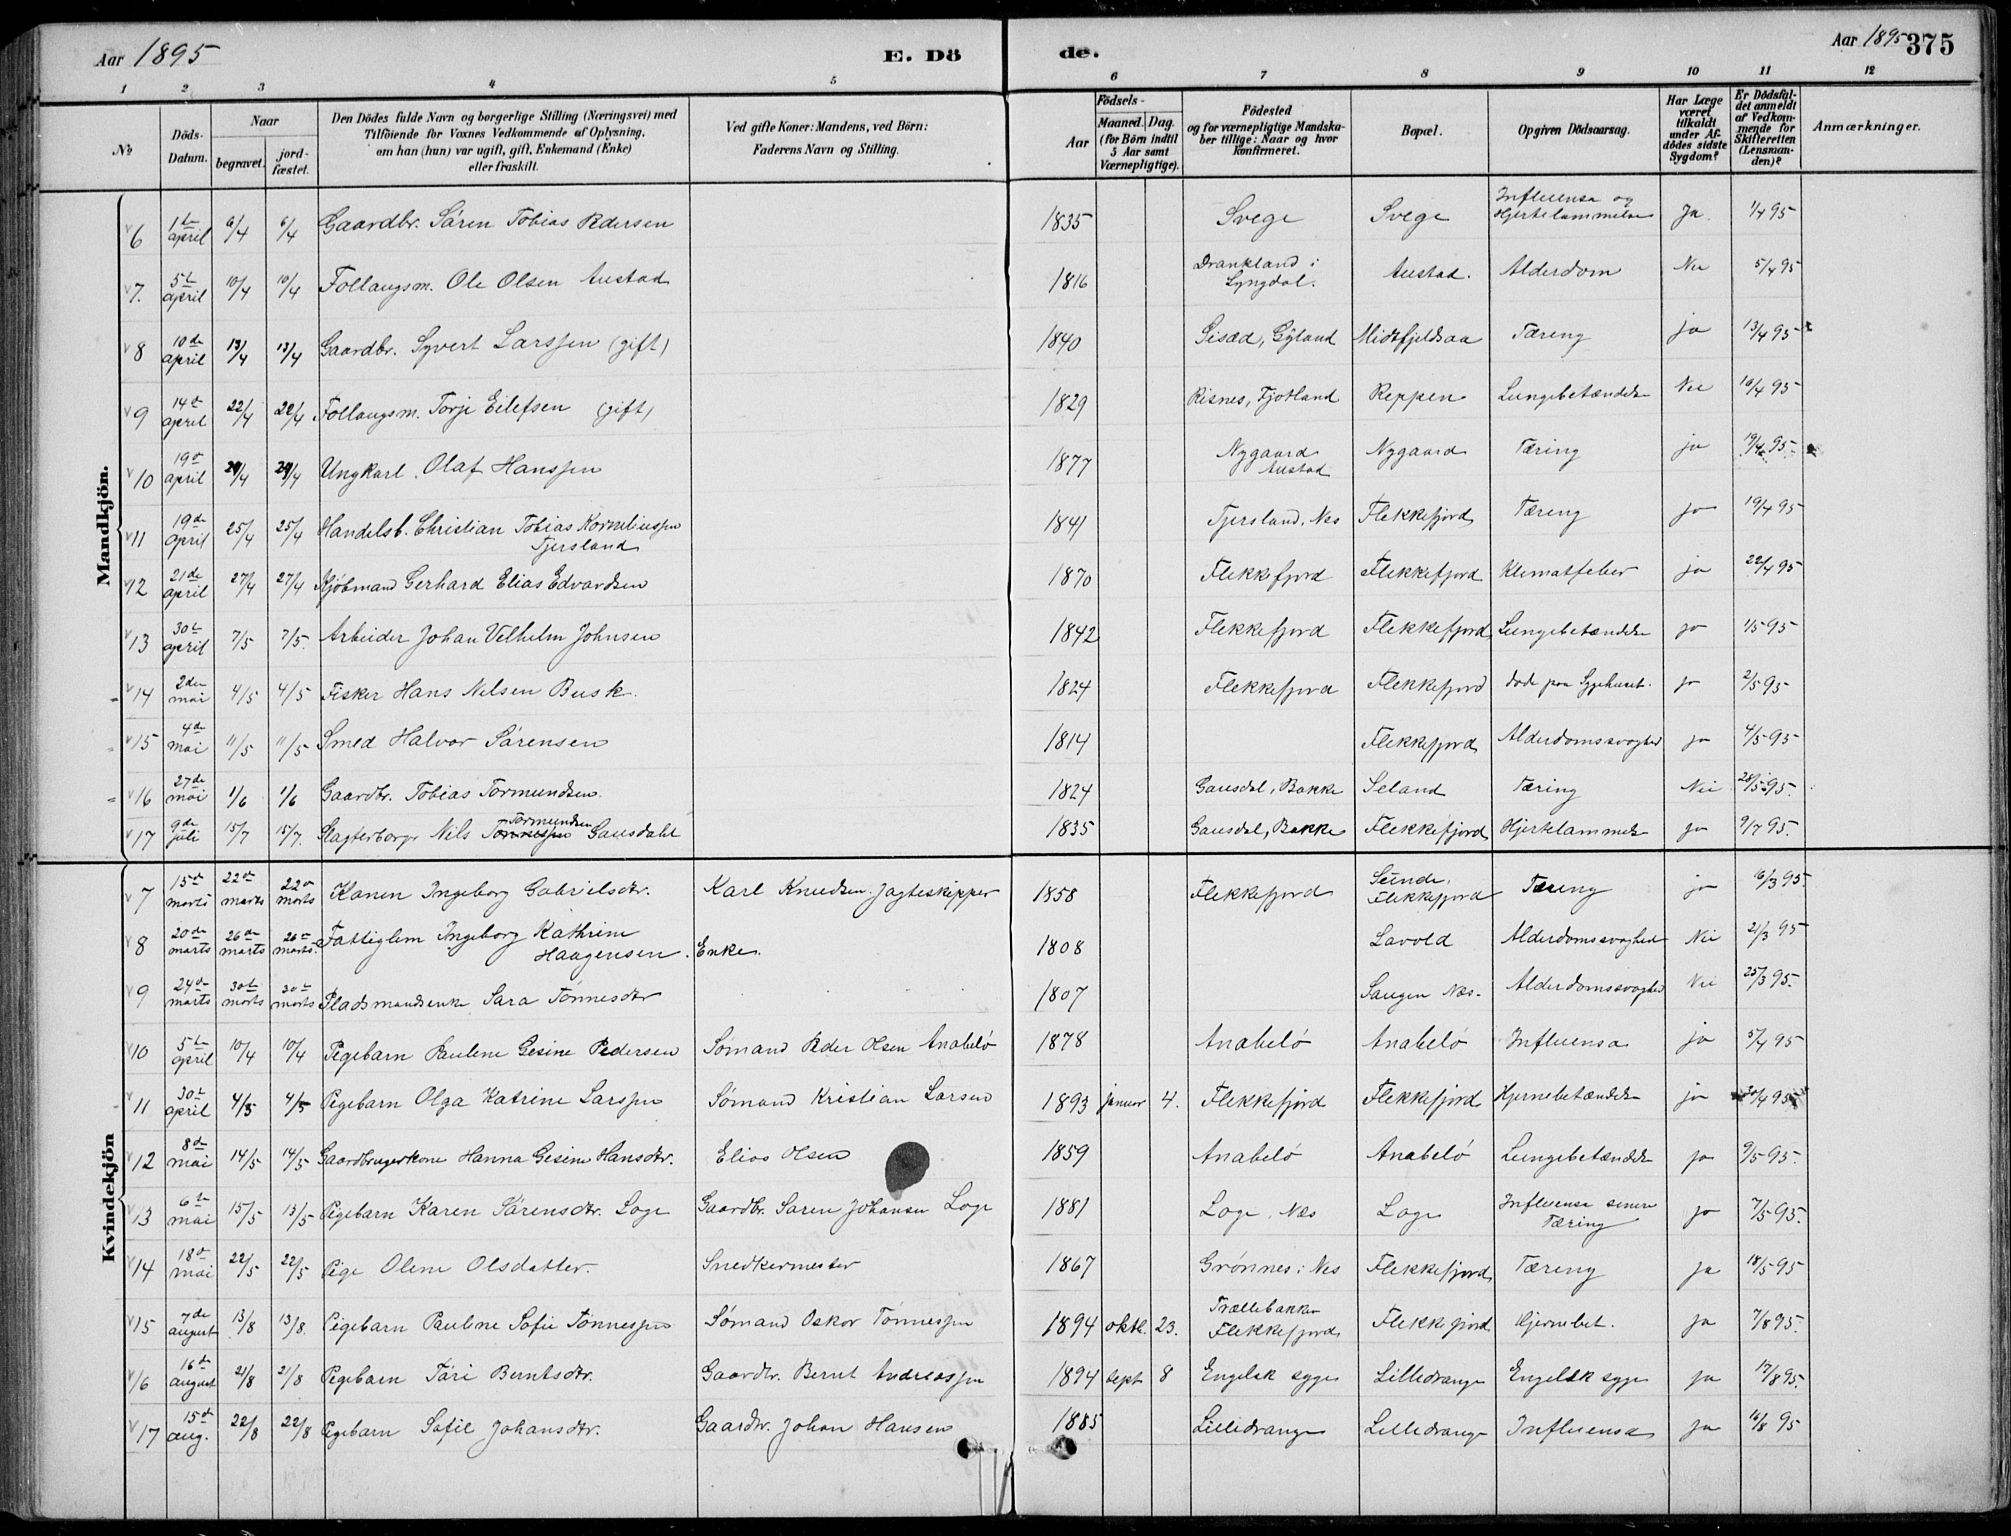 Aar 1895 E. Dö de. Aar 1895 375
1 2 3 4 5 6 7 8 9 10 11 12
No Döds-Datum. Naar begravet. jordfæstet. Den Dödes fulde Navn og borgerlige Stilling (Næringsvei) med Tilföiende for Voxnes Vedkommende af Oplysning, om han (hun) var ugift, gift, Enkemand (Enke) eller fraskilt. Ved gifte Koner: Mandens, ved Börn: Faderens Navn og Stilling. Födsels- Aar Maaned. Dag. (for Börn indtil 5 Aar samt Værnepligtige). Födested og for værnepligtige Mandskaber tillige: Naar og hvor konfirmeret. Bopæl. Opgiven Dödsaarsag. Har Læge været tilkaldt under Afdödes sidste Sygdom? Er Dödsfaldet anmeldt af Vedkommende for Skifteretten (Lensmanden)? Anmærkninger.
Mandkjön.
6 1te april 6/4 6/4 Gaardbr. Sören Tobias Pedersen 1835 Svege Svege Influensa og Hjertelammelse Ja. 1/4 95
7. 5te april 10/4 10/4 Follaugsm. Ole Olsen Austad 1816 Drankland i Lyngdal. Austad. Alderdom Nei 5/4 95
8 10de april 13/4 13/4 Gaardbr. Syvert Larssen (gift) 1840 Sisæd, Gyland Midtfjeldsaa Tæring ja 13/4 95
9 14de april 22/4 22/4 Follaugsm. Torje Eilefsen (gift) 1829 Risnes, Fjotland Reppen Lungebetændelse Nei 16/4 95
10 19de april 29/4 29/4 Ungkarl. Olaf Hanssen 1877 Nygaard Austad Nygaard Tæring ja 19/4 95
11 19de april 25/4 25/4 Handelsb. Christian Tobias Korneliussen Tjersland 1841 Tjersland, Nes Flekkefjord Tæring ja 19/4 95
12 21de april 27/4 27/4 Kjöbmand Gerhard Elias Edvardsen 1870 Flekkefjord Flekkefjord Klimatfeber ja 22/4 95
13 30te april 7/5 7/5. Arbeider Johan Vilhelm Johnsen 1842 Flekkefjord Flekkefjord Lungebetændelse ja 1/5 95
14 2den mai 4/5 4/5 Fisker Hans Nilsen Busk. 1824 Flekkefjord Flekkefjord död paa Sygehuset. ja 2/5 95
15 4de mai 11/5 11/5 Smed Halvor Sörensen 1814 Flekkefjord Alderdomssvaghed ja 4/5 95
16 27de mai 1/6 1/6 Gaardbr. Tobias Tormundsen. 1824 Gausdal, Bakke Seland Tæring Nei 28/5 95.
17 9de juli 15/7 15/7. Slagterborgr Nils Tönnessen Tormundsen Gausdalel 1835 Gausdal, Bakke Flekkefjord Hjertelammelse ja 9/7 95.
Kvindekjön
7 15de marts 22de marts 22de marts Konen Ingeborg Gabrielsdtr. Karl Knudsen. Jagteskipper 1858 Flekkefjord Sunde, Flekkefjord Tæring ja 16/3 95.
8 20de marts 26de marts 26de marts. Fattiglem Ingeborg Kathrine Haagensen. Enke. 1808 Lavold Alderdomssvaghed Nei 21/3 95
9 24de marts 30te marts 30te marts Pladsmandsenke Sara Tönnesdtr 1807 Naugen Næs. Alderdomssvaghed Nei 25/3 95.
10 5te april 10/4 10/4 Pigebarn Pauline Gesine Pedersen Sømand Peder Olsen Anabelö 1878 Anabelö Anabelö Influensa ja 5/4 95
11 30te april 4/5 4/5 Pigebarn Olga Katrine Larssen Sømand Kristian Larsen 1893 januar 4. Flekkefjord Flekkefjord Hjernebetændelse ja 30/4 95
12 8de mai 14/5 14/5 Gaardbrugerkone Hanna Gesine Hansdtr. Elias Olsen 1859 Anabelö Anabelö Lungebetændelse ja 9/5 95.
13 6te mai 15/5 15/5 Pigebarn Karen Sörensdtr. Loge Gaardbr. Sören Johansen Loge 1881 Loge, Næs Loge Influensa senere Tæring ja 7/5 95.
14 18de mai 22/5 22/5 Pige Oline Olsdatter. Snedkermester 1867 Grønnes i Nes Flekkefjord Tæring ja 18/5 95
15 7de august 13/8 13/8. Pigebarn Pauline Sofie Tönnessen Sømand Oskar Tönnessen 1894 oktb. 23. Trællebakken Flekkefjord Flekkefjord Hjernebet. ja 7/8 95.
16 16de august 21/8 21/8 Pigebarn Töri Berntsdtr. Gaardbr. Bernt Andreassen 1894 sept 8 Engelsk syge Lilledrange Engelsk syge ja 17/8 95.
17 15de aug. 22/8 22/8 Pigebarn Sofie Johansdtr. Gaardbr. Johan Hansen 1885 Lilledrange Lilledrange Influensa ja 16/8 95